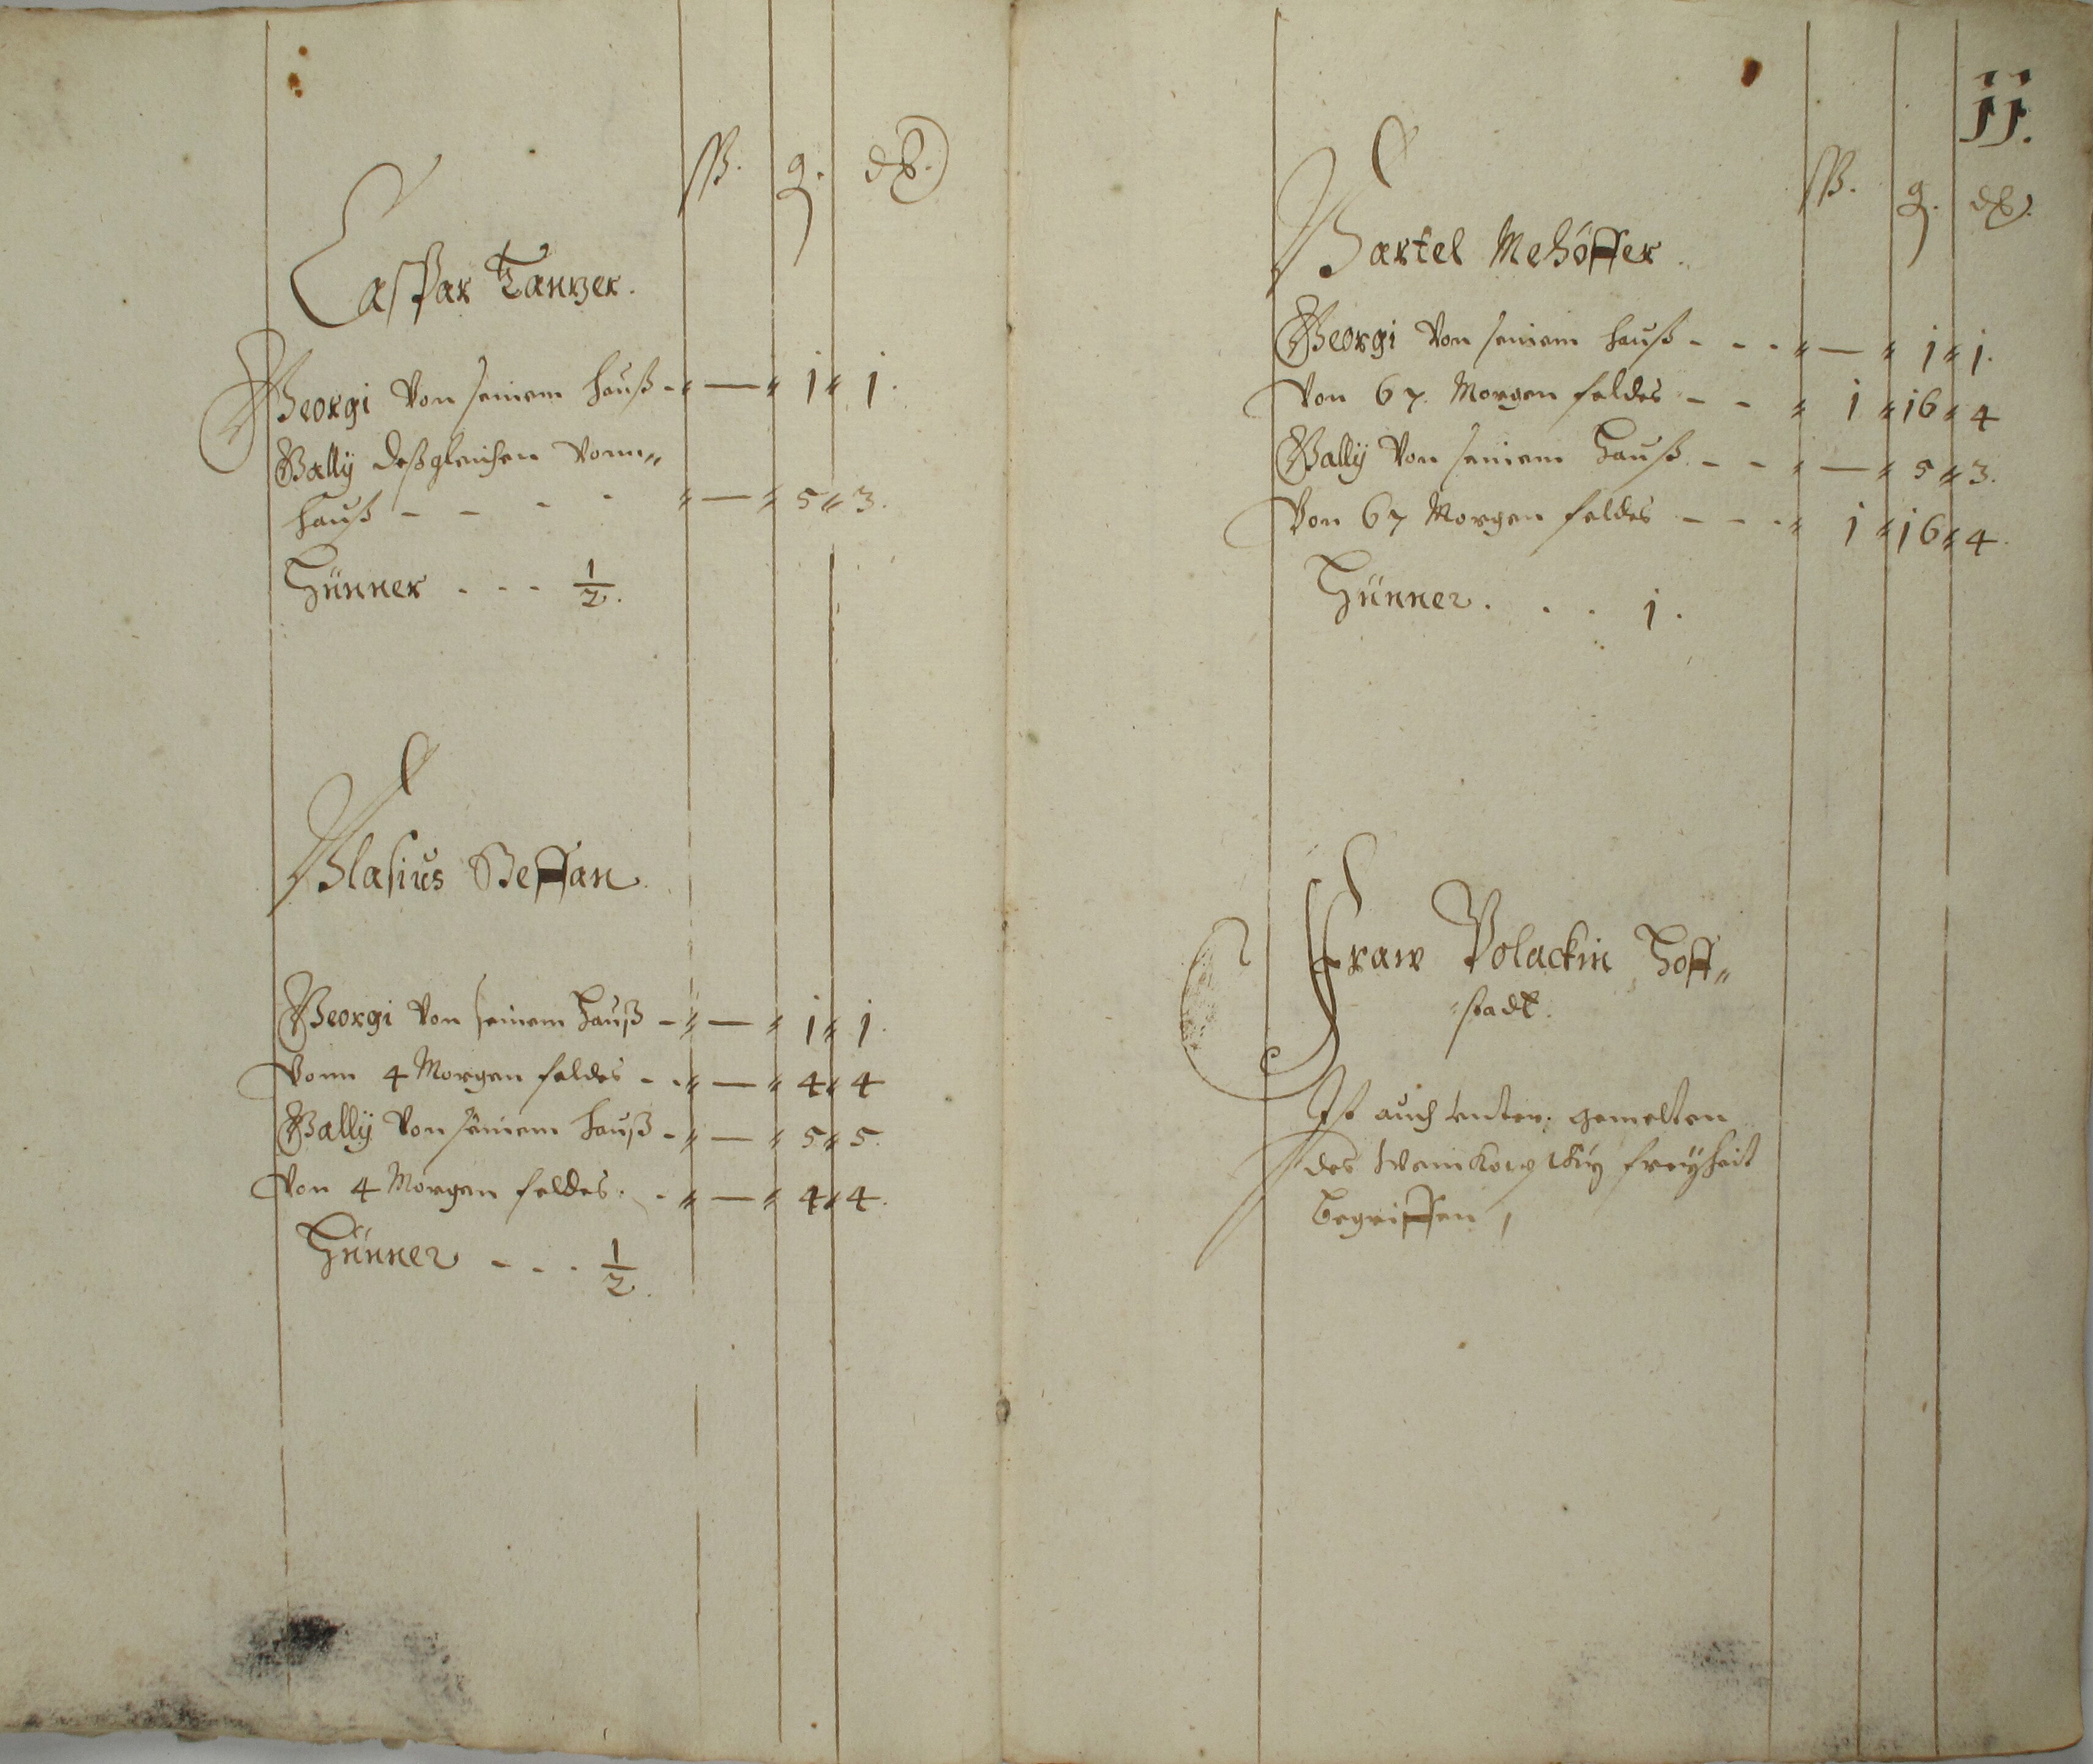 ß. g. ₰.
Caspar Tanzer.
Georgi Von seinem hauß - " — " 1 " 1.
Gally deßgleichen Vonn"
hauß - - - - " — " 5 " 3.
Hünner - - - 1/2.
Blasius Beffan.
Georgi Von seinem Hauß - " — " 1 " 1.
Vonn 4 Morgen feldes - - " — " 4 " 4
Gally Von seinem hauß - " — " 5 " 5.
Von 4 Morgen feldes. - " — " 4 " 4.
Hünner - - - 1/2.
11.
ß. g. ₰.
Bartel Mehöffer.
Georgi Von seinem hauß - - - " — " 1 " 1.
Von 67. Morgen feldes - - " 1 " 16 " 4
Gally Von seinem Hauß - - " — " 5 " 3.
Von 67 Morgen feldes - - - " 1 " 16 " 4.
Hünner. . . 1.
Fraw Polackin Hoff"
"stadt.
Ist auch unter gemelten
des freÿheit
begriffen,